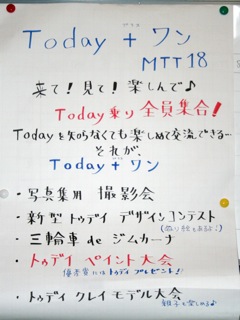 Today + ワン
MTT18
来て!見て!楽しんで♪
Today乗り 全員集合!
Todayを知らなくても楽しめて交流できる…
それが
Today + ワン
・写真集用 撮影会
・新型トゥデイ デザインコンテスト
(ぬり絵もあるよ!)
・三輪車 de ジムカーナ
・トゥデイ ペイント大会
優勝者にはトゥデイプレゼント!
・トゥデイ クレイモデル大会
親子で楽しめる♪